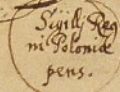 Sigilli Reg
ni Poloniæ
pens.